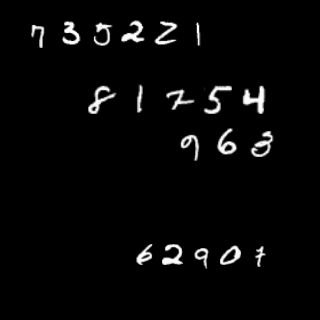 735221
81754
963
62907